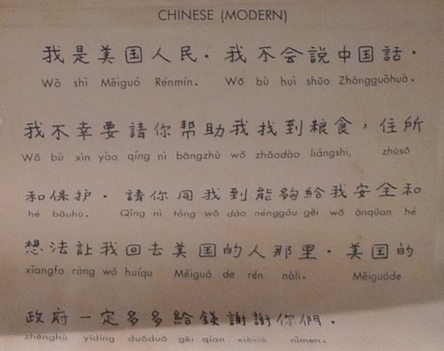 CHINESE (MODERN)
我是美国人民。我不会説中国話。
Wǒ shì Měiguó Rénmín. Wǒ bù huì shūo Zhōngguóhuà.
我不幸要請你帮助我找到粮食,住所
Wǒ bù xìn yào qíng nì bāngzhù wǒ zhǎodào liángshí, zhùsǒ
和保护。請你同我到能夠給我安全和
hé bǎohù. Qǐng nì tóng wǒ dào nénggóu gěi wǒ ānqúan hé
想法讓我回去美国的人那里。美国的
xiangfa ràng wǒ huíqu Měiguó de rén nàli. Měiguóde
政府一定多多給錢謝謝你們。
zhènghǔ yídìng duōduō gěi qían xièxiè nǐmen.